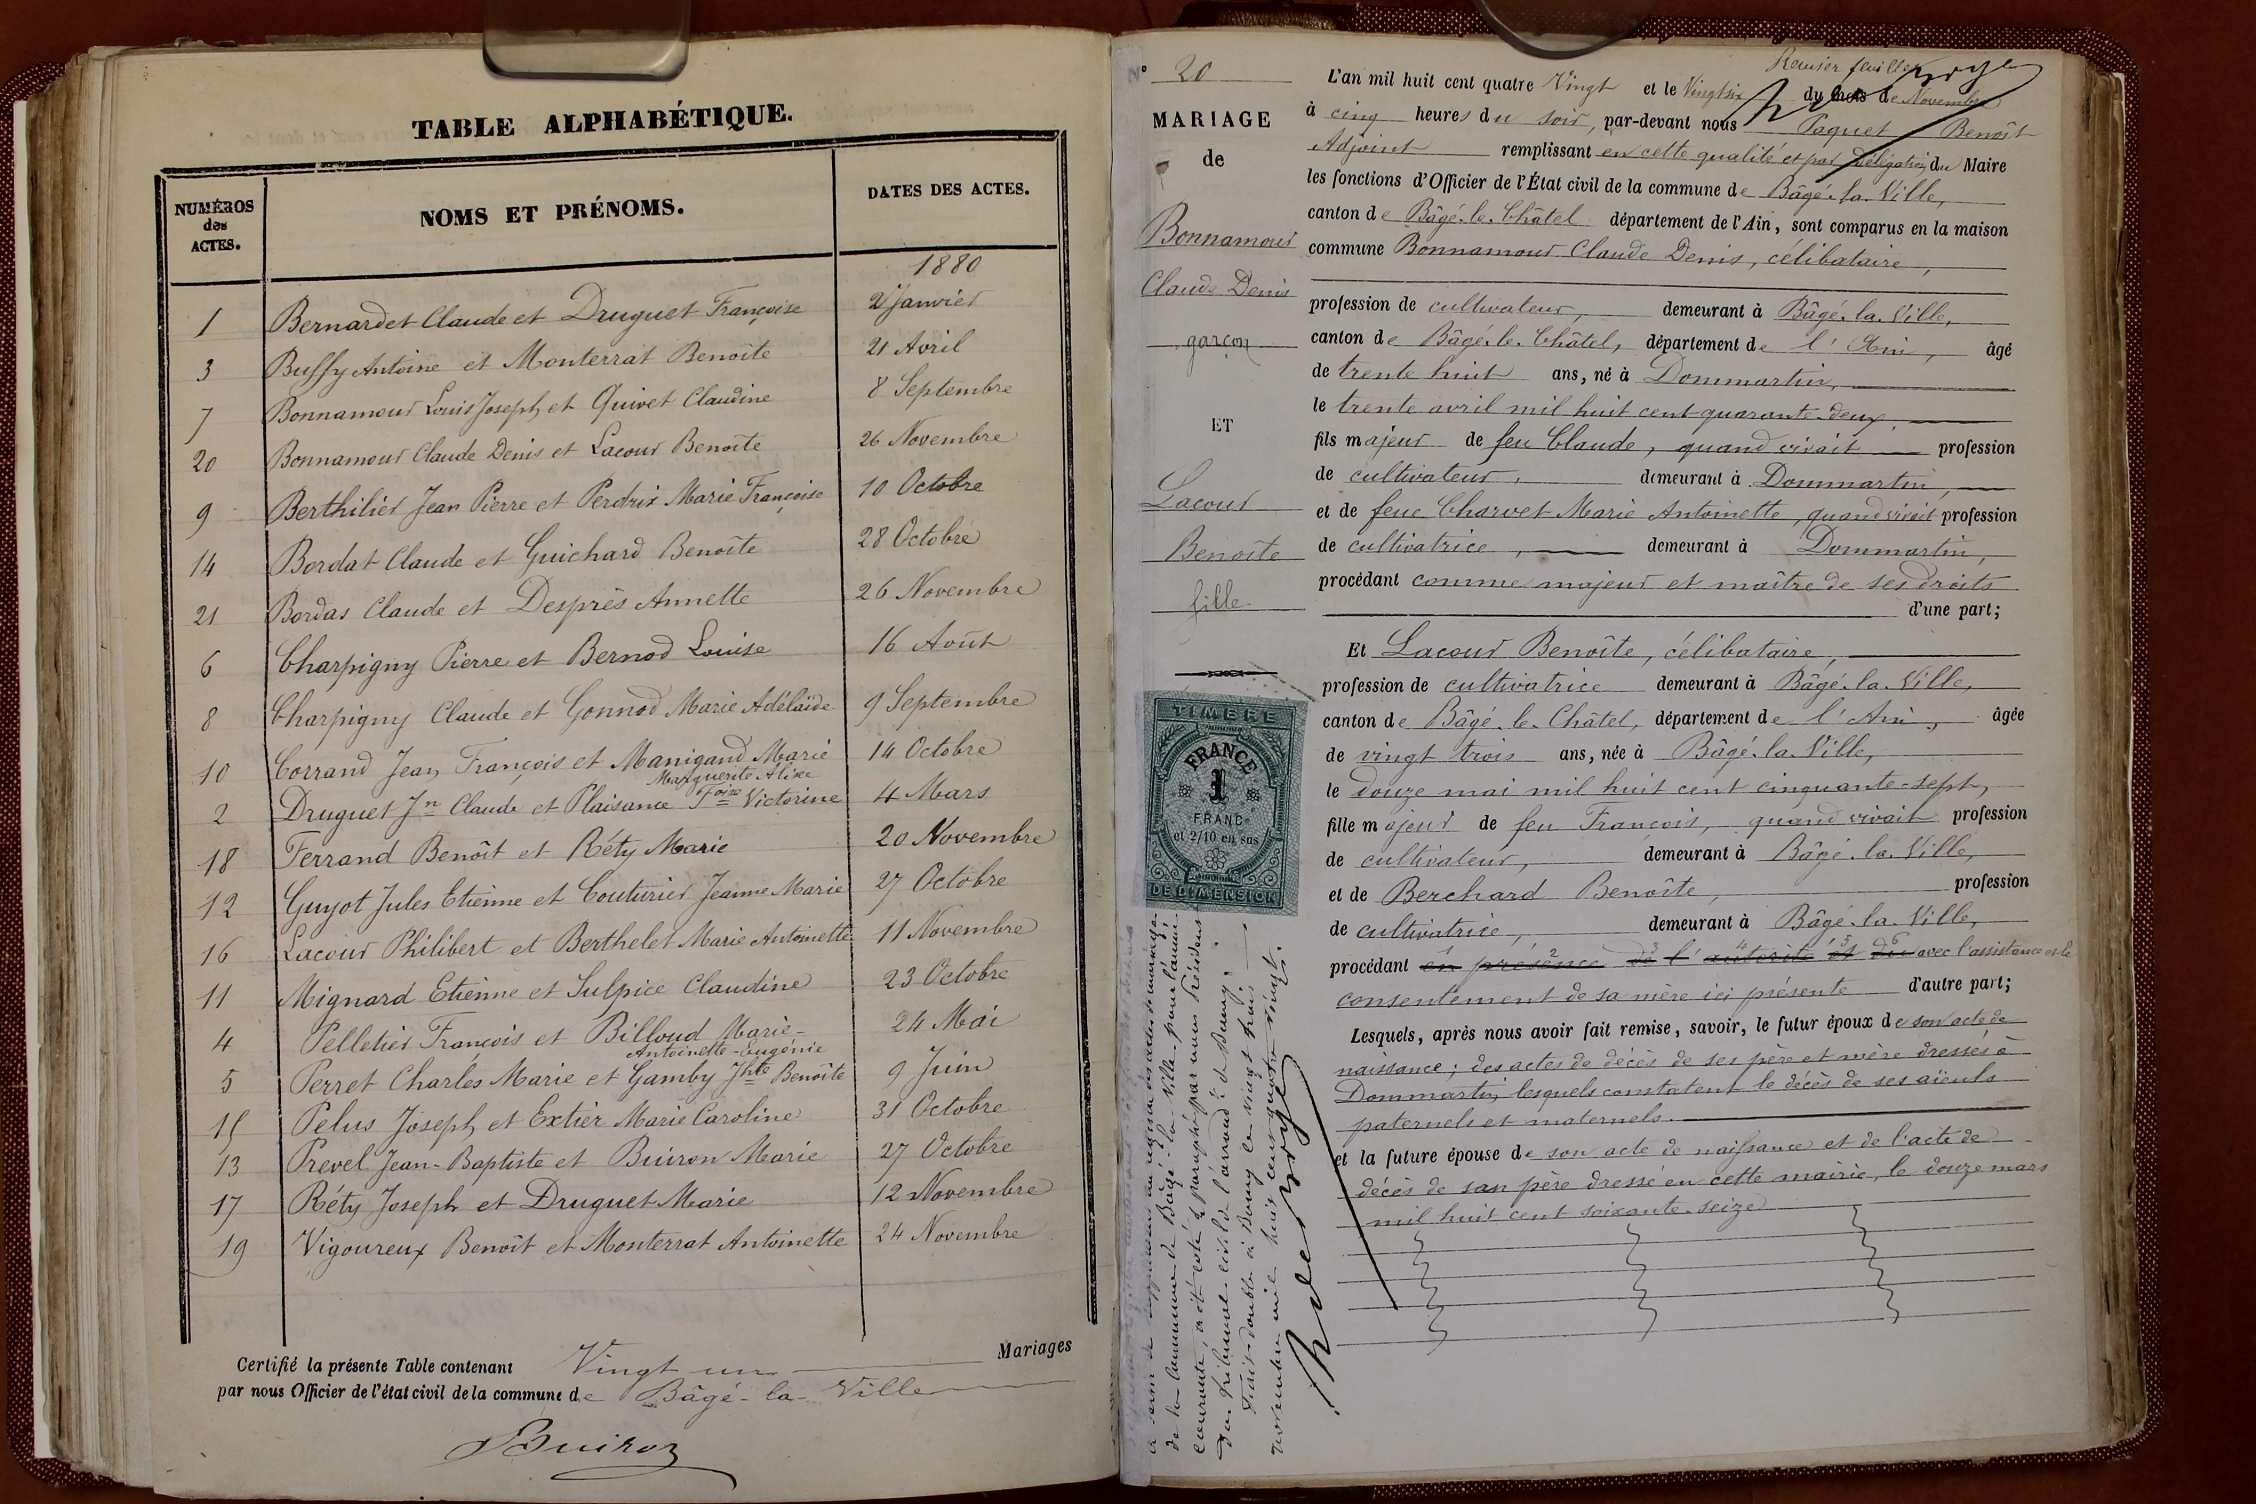 TABLE ALPHABÉTIQUE.
NUMÉROS
des
ACTES.
NOMS ET PRÉNOMS.
DATES DES ACTES.
1880
1 Bernardet Claude et Druguet Françoise 2 Janvier
3 Buffy Antoine et Monterrat Benoîte 21 Avril
7 Bonnamour Louis Joseph et Quivet Claudine 8 Septembre
20 Bonnamour Claude Denis et Lacour Benoîte 26 Novembre
9 Berthilier Jean Pierre et Perdrix Marie Françoise 10 Octobre
14 Bordat Claude et Guichard Benoîte 28 Octobre
21 Bordas Claude et Desprès Annette 26 Novembre
6 Charpigny Pierre et Bernod Louise 16 Août
8 Charpigny Claude et Gonnod Marie Adélaïde 9 Septembre
10 Corrand Jean François et Manigand Marie 14 Octobre
Marguerite Alixe
2 Druguet Jn Claude et Plaisance Foise Victorine 4 Mars
18 Ferrand Benoît et Réty Marie 20 Novembre
12 Guyot Jules Etienne et Couturier Jeanne Marie 27 Octobre
16 Lacour Philibert et Berthelet Marie Antoinette 11 Novembre
11 Mignard Etienne et Sulpice Claudine 23 Octobre
4 Pelletier François et Billoud Marie- 24 Mai
Antoinette-Eugénie
5 Perret Charles Marie et Gamby Jhte Benoîte 9 Juin
15 Pelus Joseph et Extier Marie Caroline 31 Octobre
13 Prevel Jean-Baptiste et Buiron Marie 27 Octobre
17 Réty Joseph et Druguet Marie 12 Novembre
19 Vigoureux Benoît et Monterrat Antoinette 24 Novembre
Certifié la présente Table contenant Vingt un Mariages
par nous Officier de l'état civil de la commune de Bâgé-la-Ville
Buiron
N° 20
MARIAGE
de
Bonnamour
Claude Denis
garçon
ET
Lacour
Benoîte
fille
TIMBRE
FRANCE
1
FRANC
et 2/10 en sus
DE DIMENSION
Premier feuillet
L'an mil huit cent quatre Vingt et le Vingt six du mois de Novembre
à cinq heures du soir, par-devant nous Paquet Benoît
Adjoint remplissant en cette qualité et par délégation du Maire
les fonctions d'Officier de l'État civil de la commune de Bâgé-la-Ville,
canton de Bâgé-le-Châtel département de l'Ain, sont comparus en la maison
commune Bonnamour Claude Denis, célibataire,
profession de cultivateur, demeurant à Bâgé-la-Ville,
canton de Bâgé-le-Châtel, département de l'Ain, âgé
de trente huit ans, né à Dommartin,
le trente avril mil huit cent quarante-deux,
fils majeur de feu Claude, quand vivait profession
de cultivateur, demeurant à Dommartin,
et de feue Charvet Marie Antoinette, quand vivait profession
de cultivatrice, demeurant à Dommartin,
procédant comme majeur et maître de ses droits
d'une part;
Et Lacour Benoîte, célibataire,
profession de cultivatrice demeurant à Bâgé-la-Ville,
canton de Bâgé-le-Châtel, département de l'Ain, âgée
de vingt trois ans, née à Bâgé-la-Ville,
le douze mai mil huit cent cinquante-sept,
fille majeur de feu François, quand vivait profession
de cultivateur, demeurant à Bâgé-la-Ville,
et de Berchard Benoîte, profession
de cultivatrice, demeurant à Bâgé-la-Ville,
procédant en présence de l'autorité et du avec l'assistance et le
consentement de sa mère ici présente d'autre part;
Lesquels, après nous avoir fait remise, savoir, le futur époux de son acte de
naissance; des actes de décès de ses père et mère dressés à
Dommartin, lesquels constatent le décès de ses aïeuls
paternels et maternels.
et la future épouse de son acte de naissance et de l'acte de
décès de son père dressé en cette mairie, le douze mars
mil huit cent soixante-seize
de la Commune de Bâgé-la-Ville pour l'année
courante, a été coté & paraphé par nous Président
du tribunal civil de l'arrond.t de Bourg.
Fait double à Bourg le vingt trois
novembre mil huit cent quatre vingt.